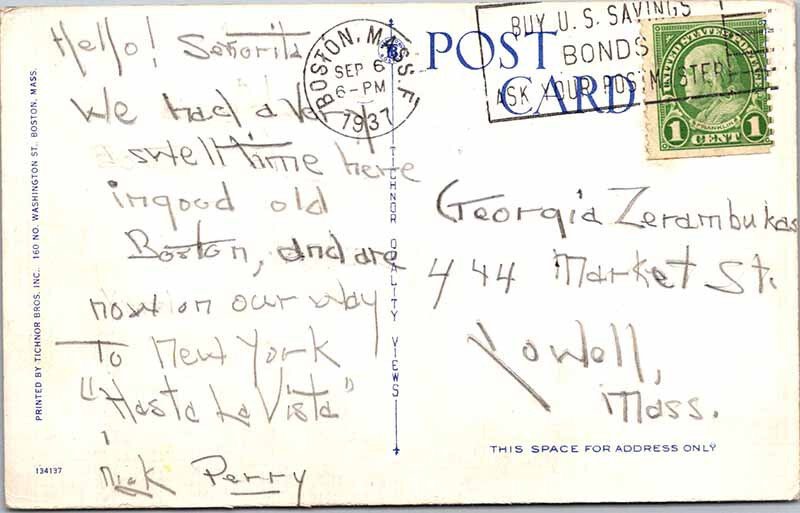 Hello! Señorita
We had a very
swell time here
in good old
Boston, and are
now on our way
To New York
"Hasta La Vista"
Nick Perry
BOSTON, MASS.
SEP 6
6-PM
1937
BUY U.S. SAVINGS
BONDS
ASK YOUR POSTMASTER
POST
CARD
UNITED STATES POSTAGE
FRANKLIN
1 CENT 1
Georgia Zerambukas
444 Market St.
Lowell,
Mass.
THIS SPACE FOR ADDRESS ONLY
TICHNOR QUALITY VIEWS
PRINTED BY TICHNOR BROS. INC. 160 NO. WASHINGTON ST. BOSTON, MASS.
134137